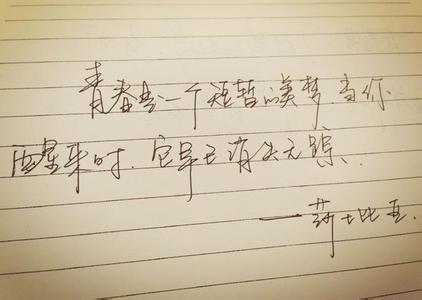 青春是一个短暂的美梦.当你
醒来时.它早已消失无踪.
——莎士比亚.